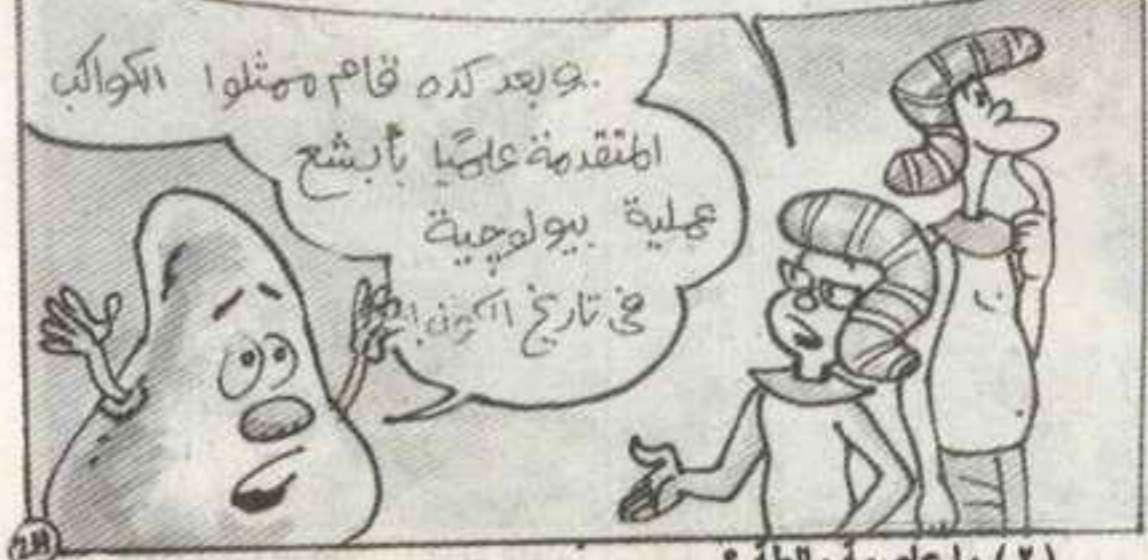 .. وبعد كده قام ممثلوا الكواكب
المتقدمة علميًا بأبشع
عملية بيولوجية
فى تاريخ الكون!